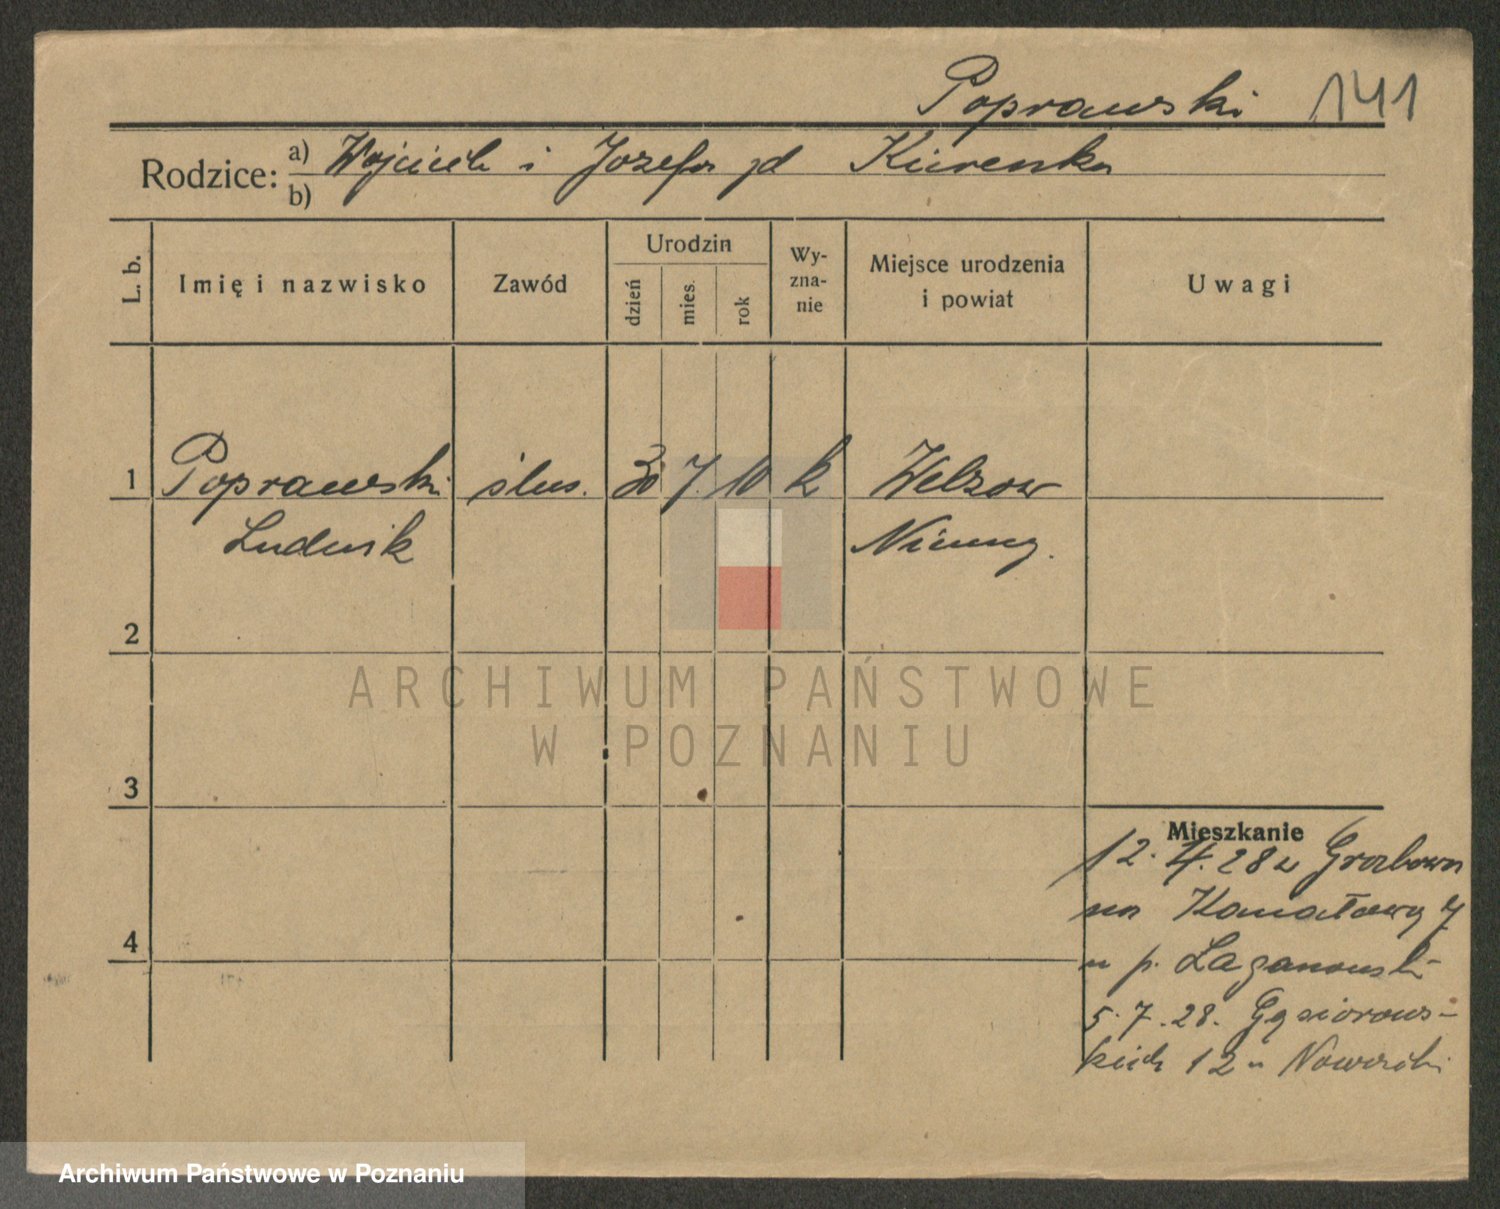 Poprawski 141
Rodzice: a) Wojciech i Józefa zd Kurenka
b)
L. b. Imię i nazwisko Zawód Urodzin Wy-zna-nie Miejsce urodzenia i powiat Uwagi
dzień mies. rok
1 Poprawski ślus. 30 7. 10 k Welzow
Ludwik Niemcy.
2
3
Mieszkanie
12. 4. 28 z Grabowa
na Kanałową 7
u p. Łaganowski
4
5. 7. 28. Gąsiorows-
kich 12 u
ARCHIWUM PAŃSTWOWE
W POZNANIU
Archiwum Państwowe w Poznaniu